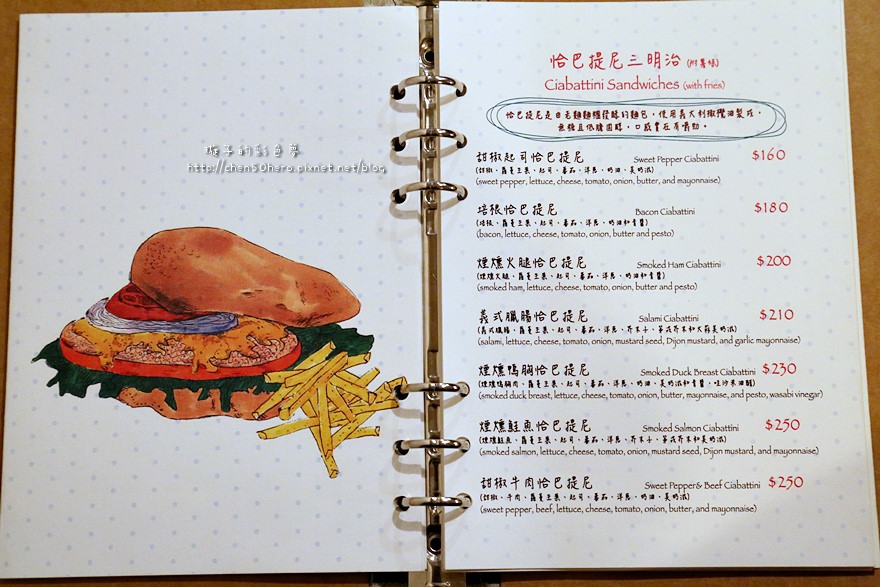 猴子的彩色夢
http://chen50hero.pixnet.net/blog
恰巴提尼三明治 (附薯條)
Ciabattini Sandwiches (with fries)
恰巴提尼是由老麵麵糰發酵的麵包，使用義大利橄欖油製成，
無糖且低膽固醇，口感實在有嚼勁。
甜椒起司恰巴提尼 Sweet Pepper Ciabattini $160
(甜椒、蘿蔓生菜、起司、番茄、洋蔥、奶油、美奶滋)
(sweet pepper, lettuce, cheese, tomato, onion, butter, and mayonnaise)
培根恰巴提尼 Bacon Ciabattini $180
(培根、蘿蔓生菜、起司、番茄、洋蔥、奶油和青醬)
(bacon, lettuce, cheese, tomato, onion, butter and pesto)
煙燻火腿恰巴提尼 Smoked Ham Ciabattini $200
(煙燻火腿、蘿蔓生菜、起司、番茄、洋蔥、奶油和青醬)
(smoked ham, lettuce, cheese, tomato, onion, butter and pesto)
義式臘腸恰巴提尼 Salami Ciabattini $210
(義式臘腸、蘿蔓生菜、起司、番茄、洋蔥、芥末子、第戎芥末和大蒜美奶滋)
(salami, lettuce, cheese, tomato, onion, mustard seed, Dijon mustard, and garlic mayonnaise)
煙燻鴨胸恰巴提尼 Smoked Duck Breast Ciabattini $230
(煙燻鴨胸肉、蘿蔓生菜、起司、番茄、洋蔥、奶油、美奶滋和青醬、哇沙米油醋)
(smoked duck breast, lettuce, cheese, tomato, onion, butter, mayonnaise, and pesto, wasabi vinegar)
煙燻鮭魚恰巴提尼 Smoked Salmon Ciabattini $250
(煙燻鮭魚、蘿蔓生菜、起司、番茄、洋蔥、芥末子、第戎芥末和美奶滋)
(smoked salmon, lettuce, cheese, tomato, onion, mustard seed, Dijon mustard, and mayonnaise)
甜椒牛肉恰巴提尼 Sweet Pepper& Beef Ciabattini $250
(甜椒、牛肉、蘿蔓生菜、起司、番茄、洋蔥、奶油、美奶滋)
(sweet pepper, beef, lettuce, cheese, tomato, onion, butter, and mayonnaise)